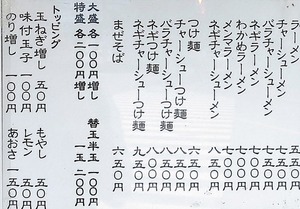 ラーメン
チャーシューメン
バラチャーシューメン
ネギラーメン
わかめラーメン
メンマラーメン
ネギチャーシューメン
つけ麺
チャーシューつけ麺
バラチャーシューつけ麺
ネギつけ麺
ネギチャーシューつけ麺
まぜそば 六五〇円
大盛 各一〇〇円増し 替玉半玉 一〇〇円
特盛 各二〇〇円増し 一玉 二〇〇円
トッピング
玉ねぎ増し 五〇円 もやし 五〇円
味付玉子 一〇〇円 レモン 五〇円
のり増し 一〇〇円 あおさ 一五〇円